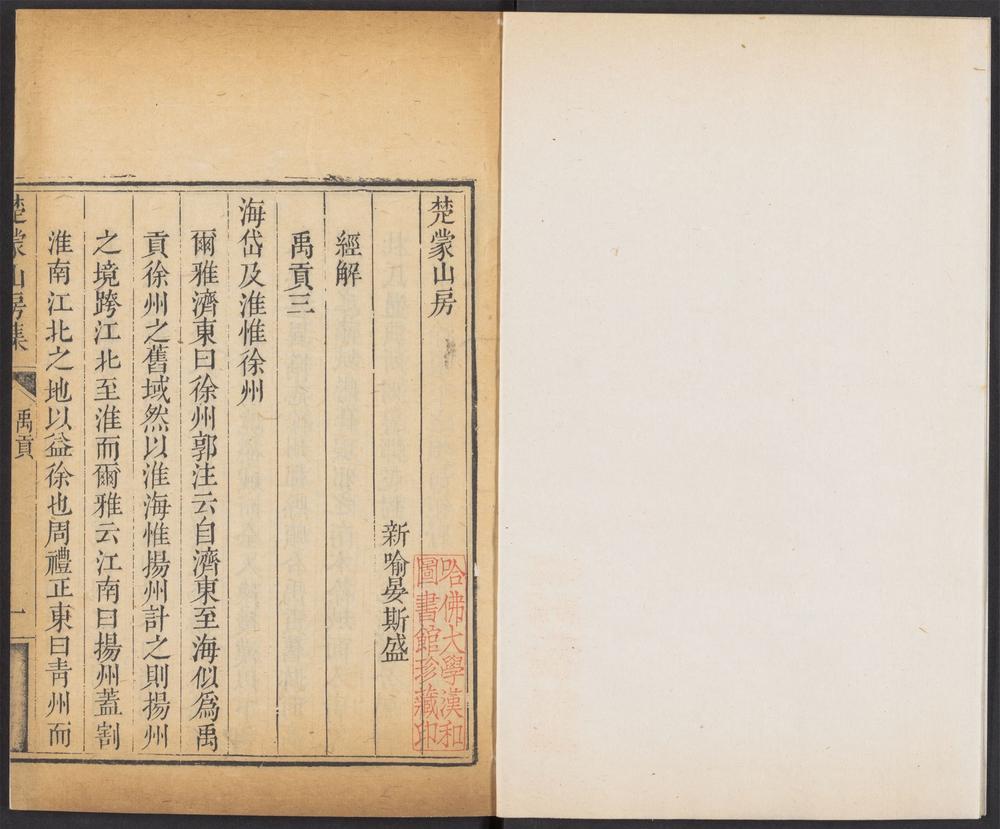 楚蒙山房
哈佛大學漢和
圖書館珍藏印
新喻晏斯盛
經解
禹貢三
海岱及淮惟徐州
爾雅濟東曰徐州郭注云自濟東至海似爲禹
貢徐州之舊域然以淮海惟揚州計之則揚州
之境跨江北至淮而爾雅云江南曰揚州蓋割
淮南江北之地以益徐也周禮正東曰靑州而
楚蒙山房集
禹貢
一